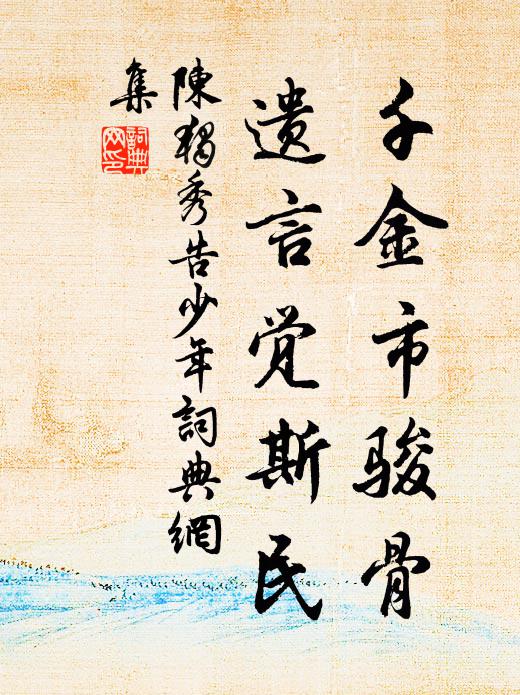 千金市骏骨
遗言觉斯民
陳獨秀告少年詞典網
集
詞典
网印